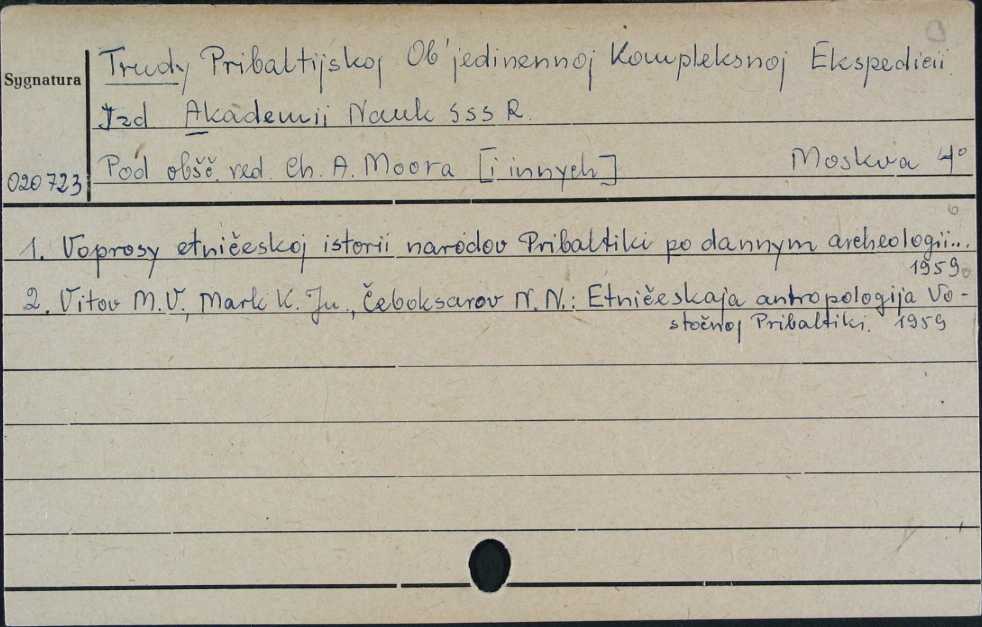 Trudy Pribaltijskoj Ob'jedinennoj Kompleksnoj Ekspedicii
Sygnatura
Izd Akademii Nauk SSSR.
020723 Pod obšč. red. Ch. A. Moora [i innych] Moskva 4°
1. Voprosy etničeskoj istorii narodov Pribaltiki po dannym archeologii...
1959.
2. Vitov M.V., Mark K. Ju., Čeboksarov N. N.: Etničeskaja antropologija Vo-
stočnoj Pribaltiki. 1959